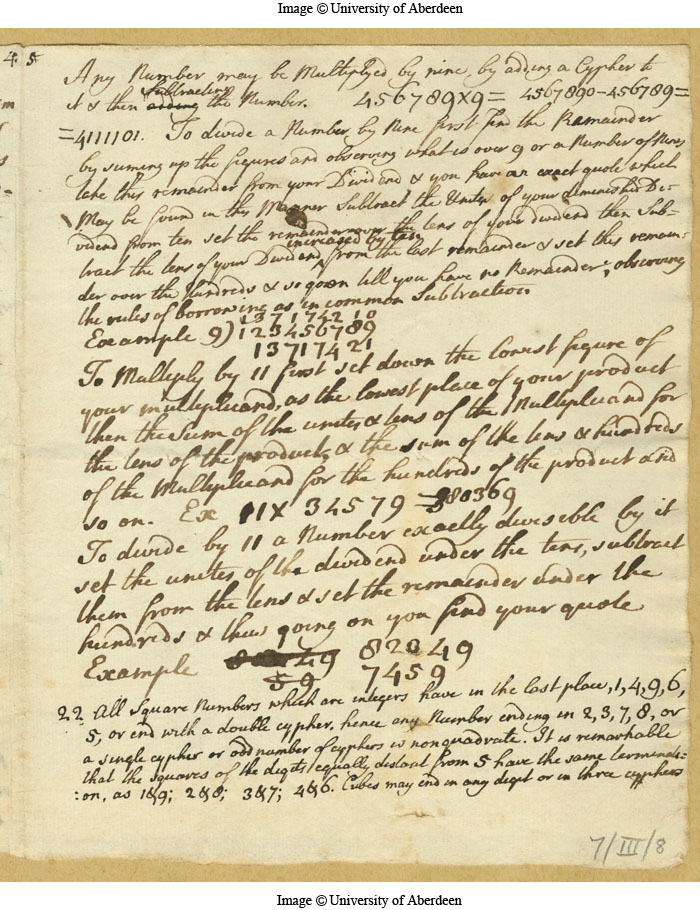 Image © University of Aberdeen
4. 5.
Any Number may be Multiplyed by nine, by adding a Cypher to
Subtracting
it & then adding the Number. 456789x9= 4567890-456789=
=4111101. To divide a Number by Nine first find the Remainder
by suming up the figures and observing what is over 9 or a Number of Nines
take this remainder from your Dividend & you have an exact quote which
May be found in this Manner Subtract the Units of your diminish'd Di-
vidend from ten set the remainder over the tens of your dividend then Sub-
increased by ten
tract the tens of your Dividend from the last remainder & set this remain-
der over the hundreds & so go on till you have no Remainder, observing
the rules of borrowing as in common Subtraction.
13717421 0
Example 9)123456789
13717421
To Multiply by 11 first set down the lowest figure of
your multiplicand, as the lowest place of your product
then the Sum of the unites & tens of the Multiplicand for
the tens of the product, & the sum of the tens & hundreds
of the Multiplicand for the hundreds of the product and
so on. Ex 11x 34579 = 380369
To divide by 11 a Number exactly divisible by it
set the unites of the dividend under the tens, subtract
them from the tens & set the remainder under the
hundreds & thus going on you find your quote
Example 82049
59 7459
22 All Square Numbers which are integers have in the last place, 1, 4, 9, 6,
5, or end with a double cypher, hence any Number ending in 2, 3, 7, 8, or
a single cypher or odd number of cyphers is nonquadrate. It is remarkable
that the squares of the digits equally distant from 5 have the same terminati-
:on, as 1&9; 2&8; 3&7; 4&6. Cubes may end in any digit or in three cyphers
7/III/8
Image © University of Aberdeen